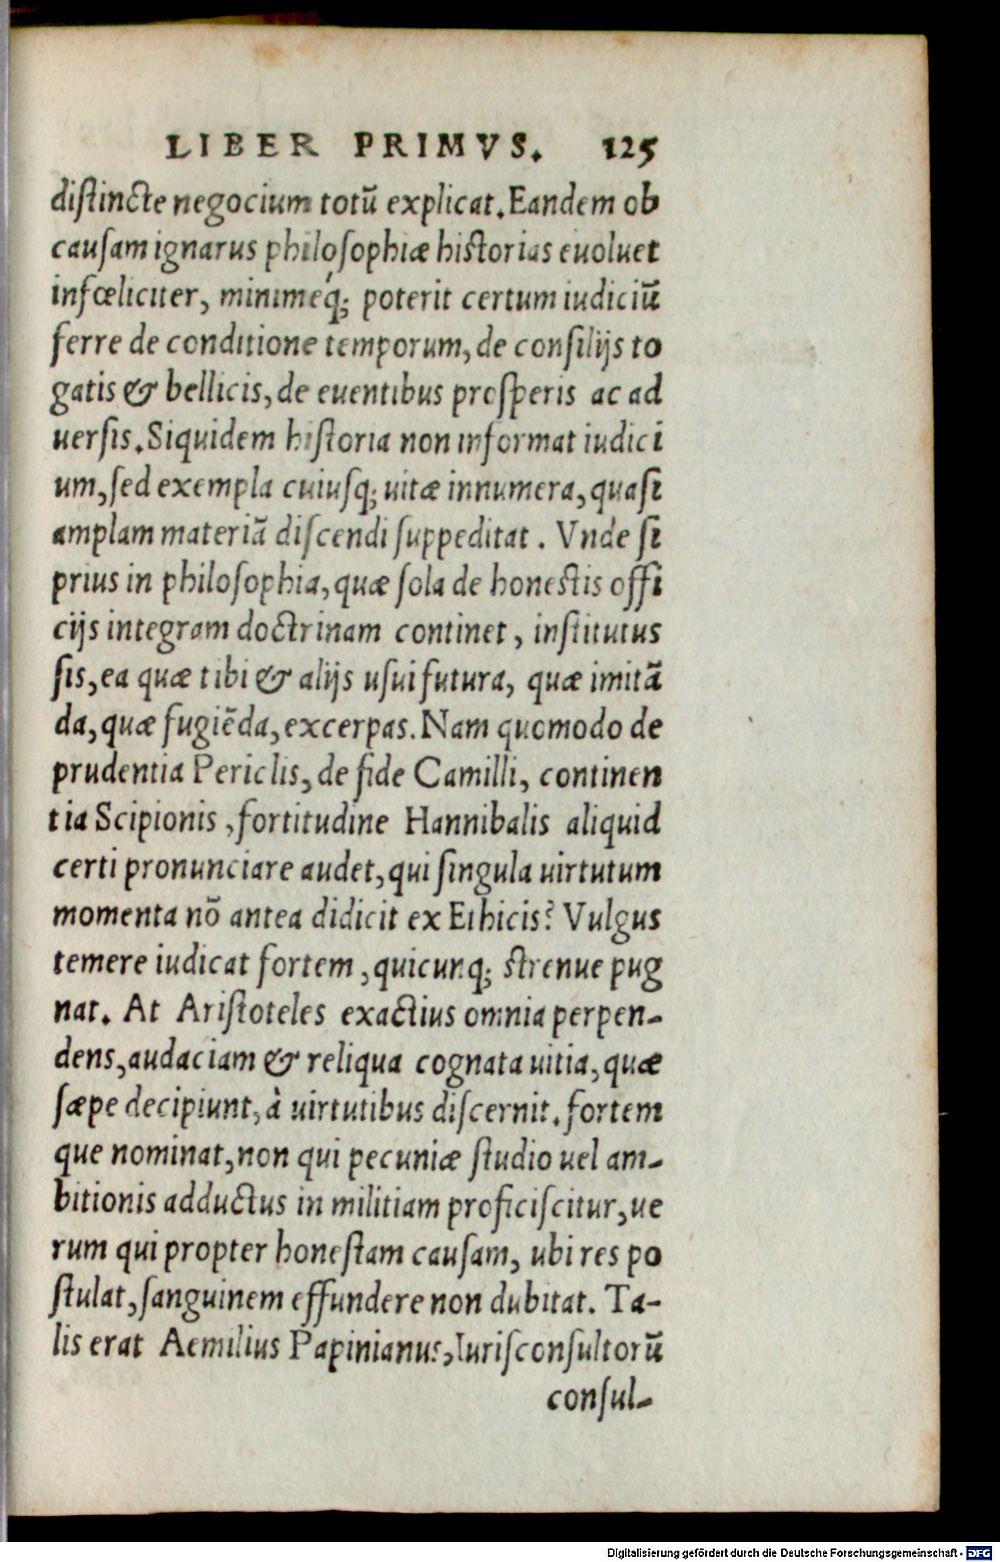 LIBER PRIMVS. 125
distincte negocium totũ explicat. Eandem ob
causam ignarus philosophiæ historias euoluet
infœliciter, minimeq́; poterit certum iudiciũ
ferre de conditione temporum, de consilijs to
gatis & bellicis, de euentibus prosperis ac ad
uersis. Siquidem historia non informat iudici
um, sed exempla cuiusq; uitæ innumera, quasi
amplam materiã discendi suppeditat. Vnde si
prius in philosophia, quæ sola de honestis offi
cijs integram doctrinam continet, institutus
sis, ea quæ tibi & alijs usui futura, quæ imitã
da, quæ fugiẽda, excerpas. Nam quomodo de
prudentia Periclis, de fide Camilli, continen
tia Scipionis, fortitudine Hannibalis aliquid
certi pronunciare audet, qui singula uirtutum
momenta nõ antea didicit ex Ethicis? Vulgus
temere iudicat fortem, quicunq; strenue pug
nat. At Aristoteles exactius omnia perpen-
dens, audaciam & reliqua cognata uitia, quæ
sæpe decipiunt, à uirtutibus discernit. fortem
que nominat, non qui pecuniæ studio uel am-
bitionis adductus in militiam proficiscitur, ue
rum qui propter honestam causam, ubi res po
stulat, sanguinem effundere non dubitat. Ta-
lis erat Aemilius Papinianus, Iurisconsultorũ
consul-
Digitalisierung gefördert durch die Deutsche Forschungsgemeinschaft - DFG